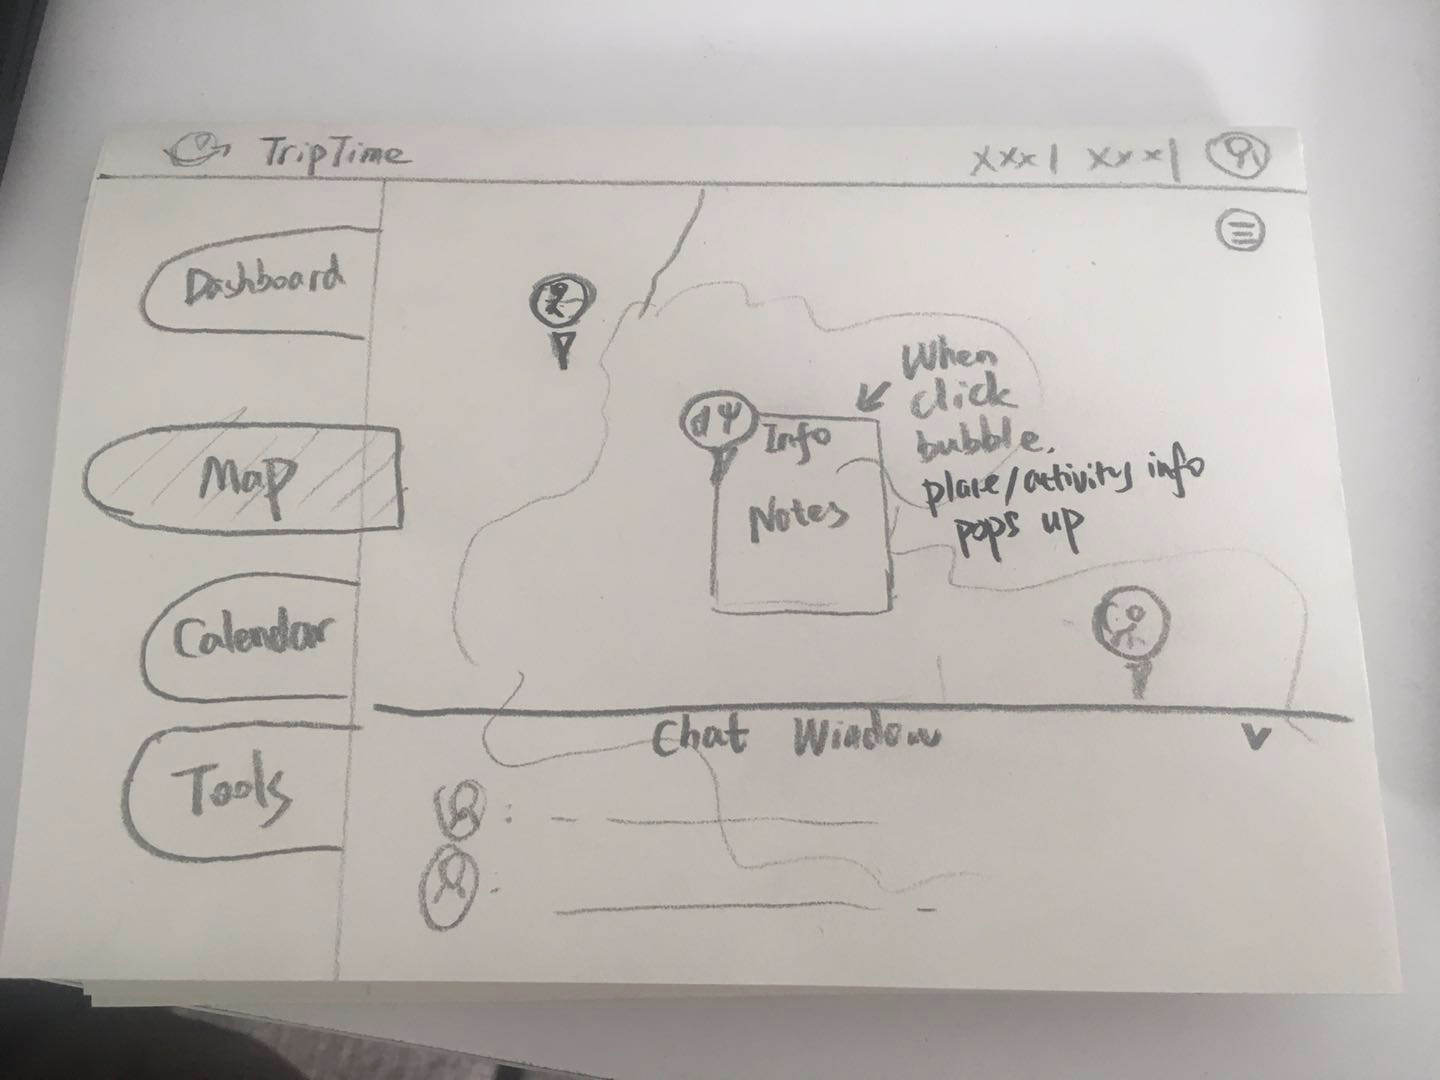 TripTime
xxx | xxx |
Dashboard
Map
Calendar
Tools
Info
Notes
When
click
bubble.
place/activity info
pops up
Chat Window